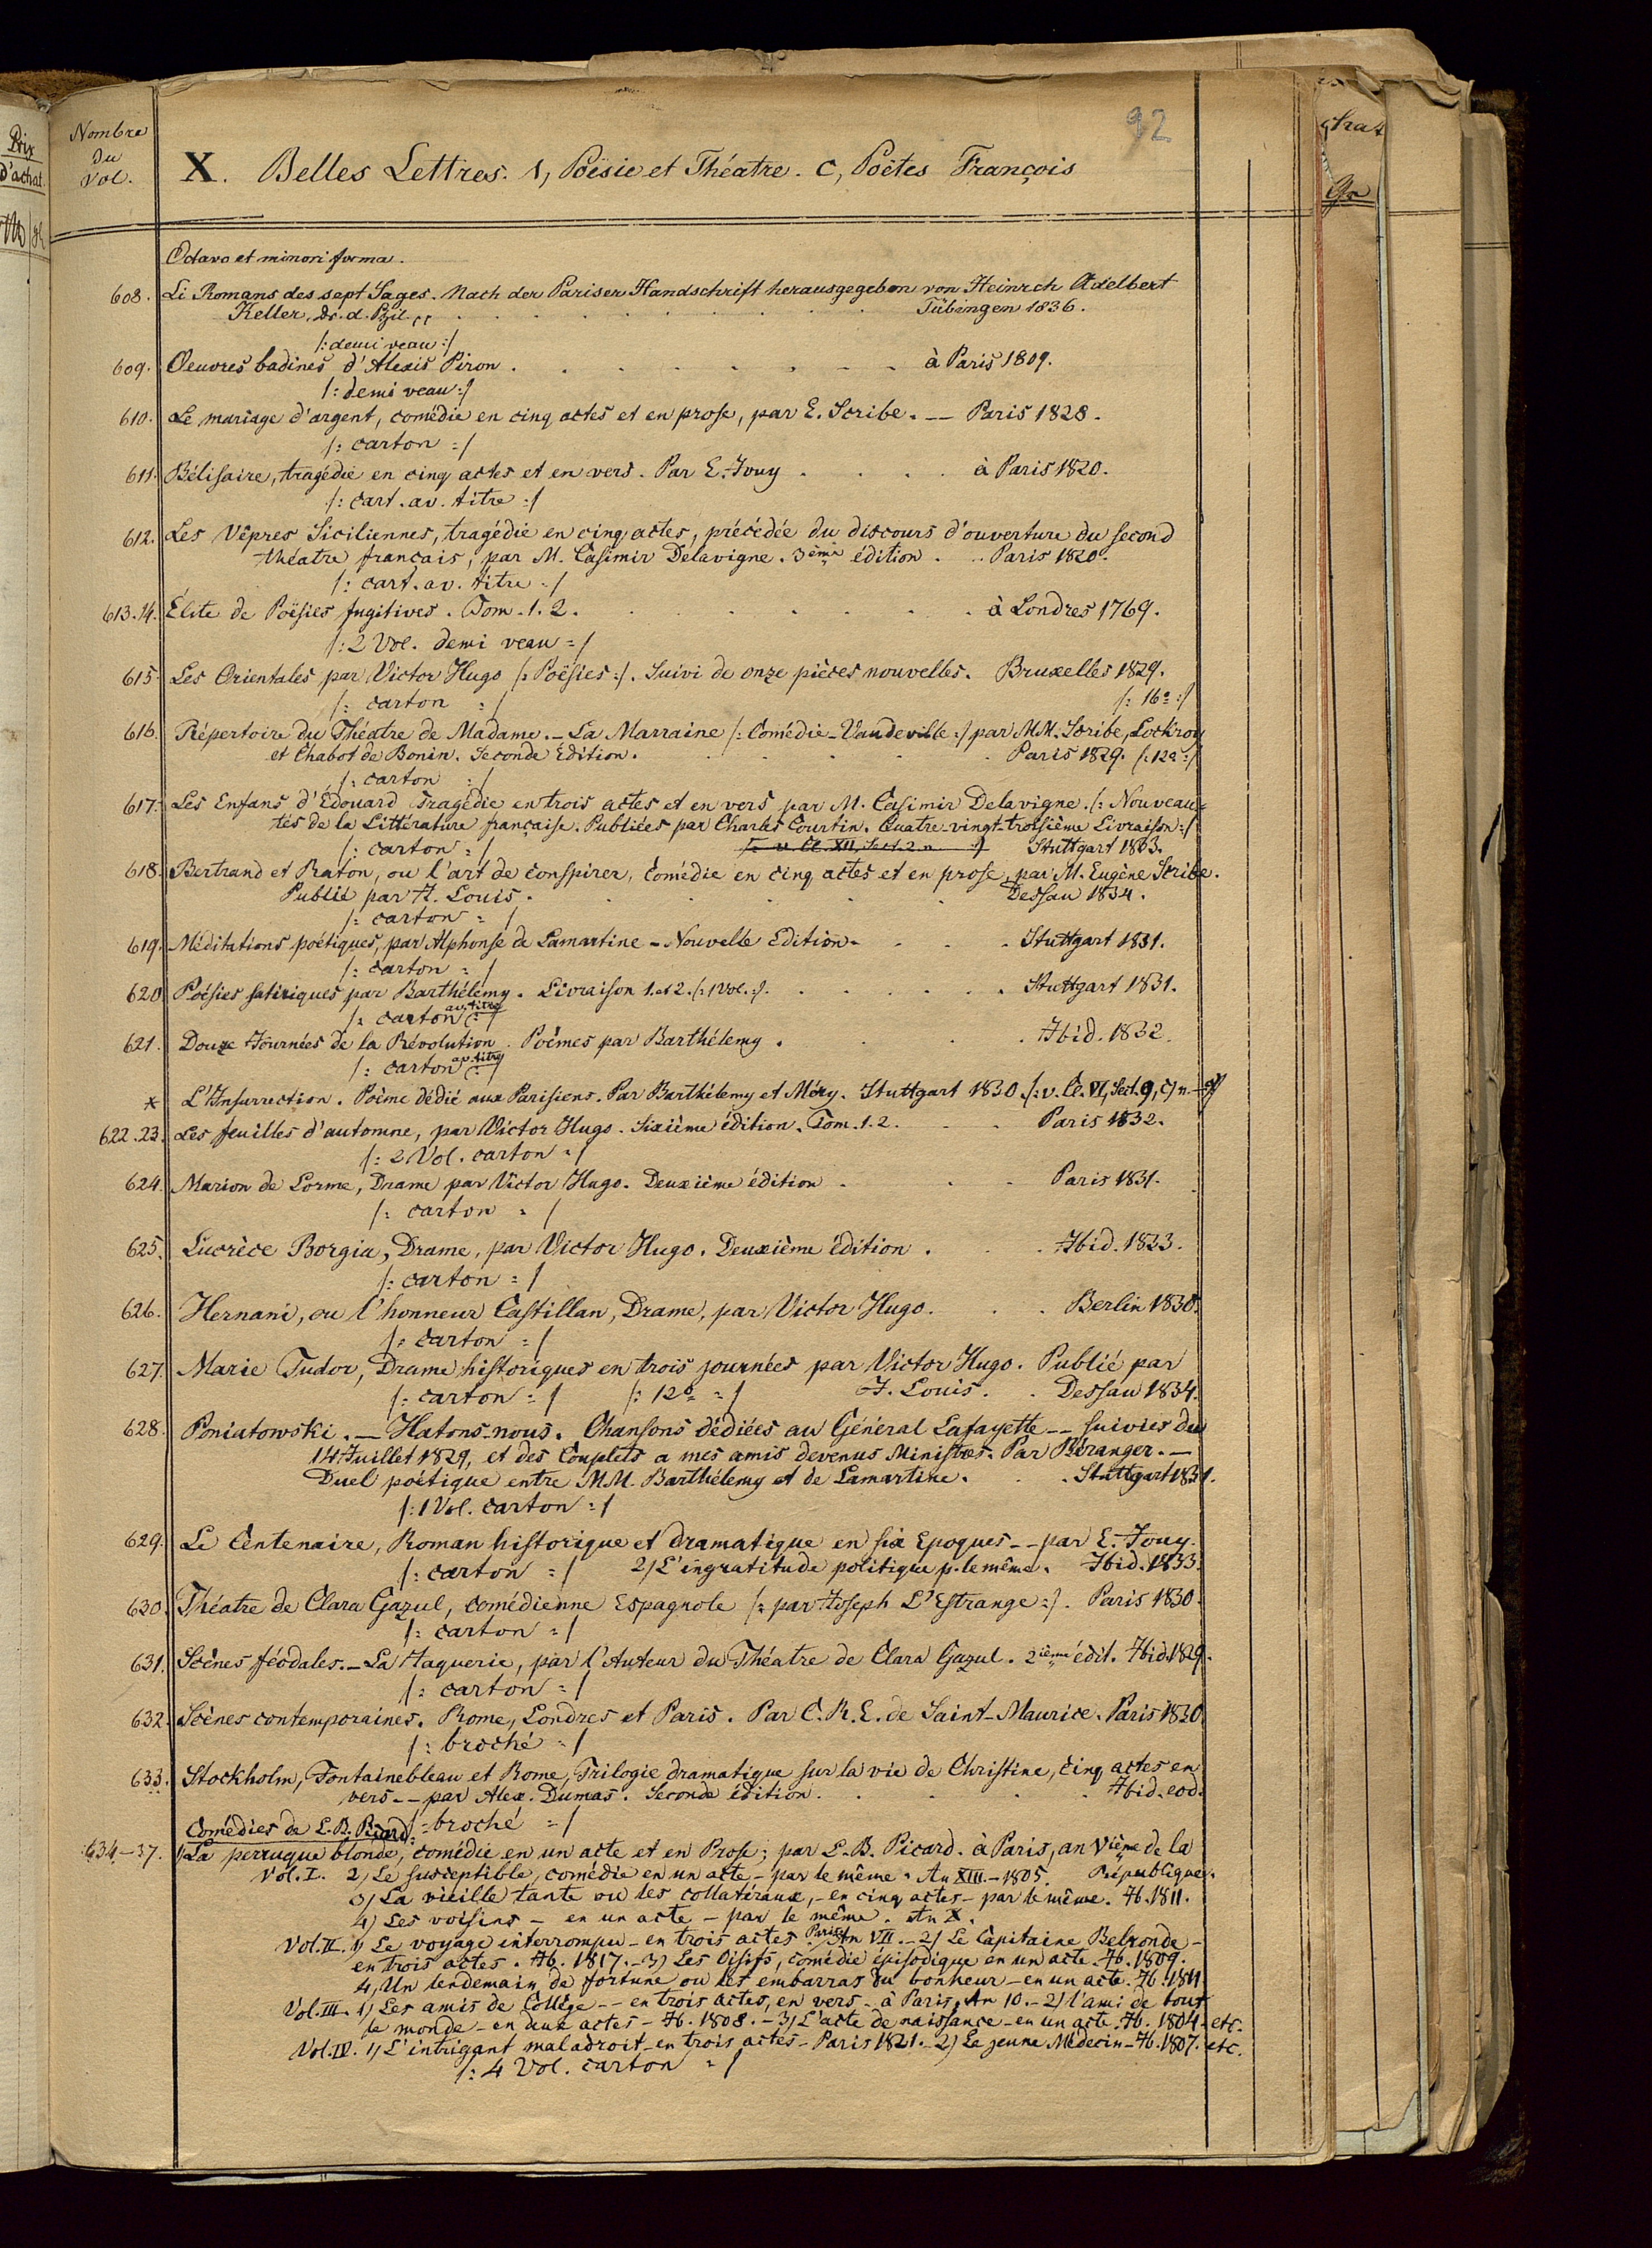 Prix
d'achat.
Nombre
du
Vol.
92
X. Belles Lettres. 1, Poësie et Théatre. C, Poëtes François
Octavo et minori forma.
608. Li Romans des sept Sages. Nach der Pariser Handschrift herausgegeben von Heinrch Adelbert
Keller, dr. d. Phil. Tübingen 1836.
/: demi veau :/
609. Oeuvres badines d'Alexis Piron . . . . . . . . à Paris 1809.
/: demi veau :/
610. Le mariage d'argent, comédie en cinq actes et en prose, par E. Scribe. — Paris 1828.
/: carton :/
611. Bélisaire, tragédie en cinq actes et en vers. Par E. Jouy . . . . à Paris 1820.
/: cart. av. titre :/
612. Les Vêpres Siciliennes, tragédie en cinq actes, précédée du discours d'ouverture du second
théatre français, par M. Casimir Delavigne. 3ème édition . . . Paris 1820.
/: cart. av. titre :/
613.14. Élite de Poësies fugitives. Tom. 1. 2. . . . . . . à Londres 1769.
/: 2 Vol. demi veau :/
615. Les Orientales par Victor Hugo /: Poësies :/. Suivi de onze pièces nouvelles. Bruxelles 1829.
/: carton :/ /: 16º :/
616. Répertoire du Théatre de Madame. — La Marraine /: Comédie-Vaudeville :/ par MM. Scribe, Lockroy
et Chabot de Bonin. Seconde Édition. . . . . Paris 1829. /: 12º :/
/: carton :/
617. Les Enfans d'Édouard Tragédie en trois actes et en vers par M. Casimir Delavigne. /: Nouveau=
tés de la Littérature française. Publiées par Charles Courtin. Quatre-vingt-troisième Livraison :/
/: carton :/ /: v. Cl. XII, Sect. 2 n. :/ Stuttgart 1833.
618. Bertrand et Raton, ou l'art de conspirer, comédie en cinq actes et en prose, par M. Eugène Scribe.
Publié par H. Louis. . . . . Dessau 1834.
/: carton :/
619. Méditations poétiques, par Alphonse de Lamartine - Nouvelle Edition. . . . Stuttgart 1831.
/: carton :/
620 Poésies satiriques par Barthélemy. Livraison 1. et 2. /: 1 Vol. :/. . . . . . Stuttgart 1831.
/: carton av. titre :/
621. Douze Journées de la Révolution. Poèmes par Barthélemy. . . . Ibid. 1832.
/: carton av. titre :/
* L'Insurrection. Poème dédié aux Parisiens. Par Barthélemy et Méry. Stuttgart 1830. /: v. Cl. VI, Sect. 9, c) n. :/
622.23. Les feuilles d'automne, par Victor Hugo. Sixième édition. Tom. 1. 2. . . Paris 1832.
/: 2 Vol. carton :/
624. Marion de Lorme, Drame par Victor Hugo. Deuxième édition . . . Paris 1831.
/: carton :/
625. Lucrèce Borgia, Drame, par Victor Hugo. Deuxième édition . . . Ibid. 1833.
/: carton :/
626. Hernani, ou l'honneur Castillan, Drame, par Victor Hugo. . . Berlin 1830.
/: carton :/
627. Marie Tudor, Drame historiques en trois journées par Victor Hugo. Publié par
/: carton :/ /: 12º :/ H. Louis. . Dessau 1834.
628. Poniatowski. — Hatons-nous. Chansons dédiées au Général Lafayette -- suivies du
14 Juillet 1829, et des Couplets a mes amis devenus Ministres. Par Béranger. —
Duel poétique entre MM. Barthélemy et de Lamartine. . . Stuttgart 1831.
/: 1 Vol. carton :/
629. Le Centenaire, Roman historique et dramatique en six Epoques -- par E. Jouy.
/: carton :/ 2) L'ingratitude politique p. le même. Ibid. 1833.
630. Théatre de Clara Gazul, comédienne Espagnole /: par Joseph L'Estrange :/. Paris 1830.
/: carton :/
631. Scènes féodales. — La Jaquerie, par l'Auteur du Théatre de Clara Gazul. 2ième édit. Ibid. 1829.
/: carton :/
632. Scènes contemporaines. Rome, Londres et Paris. Par C. R. E. de Saint-Maurice. Paris 1830.
/: broché :/
633. Stockholm, Fontainebleau et Rome, Trilogie dramatique sur la vie de Christine, cinq actes en
vers -- par Alex. Dumas. Seconde édition. . . . . Ibid. eod.
/: broché :/
Comédies de L. B. Picard.
634-37. 1) La perruque blonde, comédie en un acte et en Prose; par L. B. Picard. à Paris, an VIème de la
Vol. I. 2) Le susceptible, comédie en un acte - par le même. An XIII. - 1805. République.
3) La vieille tante ou les collatéraux, - en cinq actes - par le même. Ib. 1811.
4) Les voisins - en un acte - par le même. An X.
Vol. II. 1) Le voyage interrompu - en trois actes. Paris An VII. - 2) Le Capitaine Belronde -
en trois actes. Ib. 1817. - 3) Les Oisifs, comédie épisodique en un acte. Ib. 1809.
4, Un lendemain de fortune ou les embarras du bonheur - en un acte. Ib. 1811.
Vol. III. 1) Les amis de Collège -- en trois actes, en vers - à Paris, An 10. - 2) l'ami de tout
le monde - en deux actes - Ib. 1808. - 3) L'acte de naissance - en un acte. Ib. 1804. etc.
Vol. IV. 1) L'intrigant maladroit - en trois actes - Paris 1821. - 2) Le jeune Médecin - Ib. 1807. etc.
/: 4 Vol. carton :/